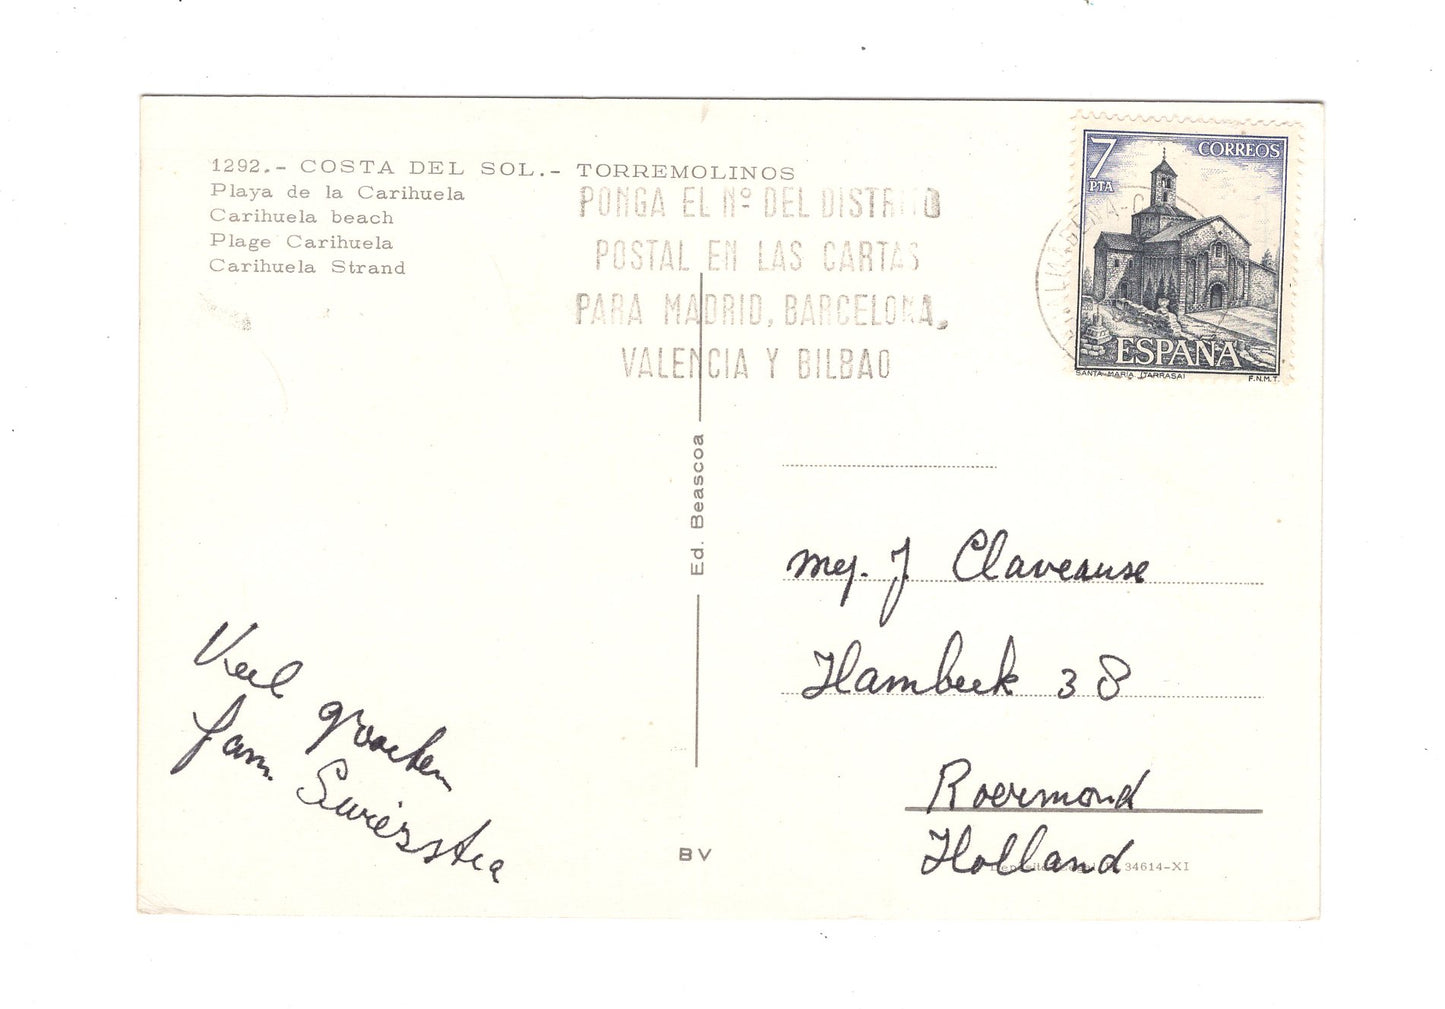 1292.- COSTA DEL SOL.- TORREMOLINOS
Playa de la Carihuela
Carihuela beach
Plage Carihuela
Carihuela Strand
PONGA EL Nº DEL DISTRITO
POSTAL EN LAS CARTAS
PARA MADRID, BARCELONA,
VALENCIA Y BILBAO
7 CORREOS
PTA
ESPAÑA
SANTA MARIA (TARRASA) F.N.M.T.
Ed. Beascoa
Veel groeten
fam. Swiersstra
mej. J. Claveause
Hambeek 38
Roermond
Holland
34614-XI
BV